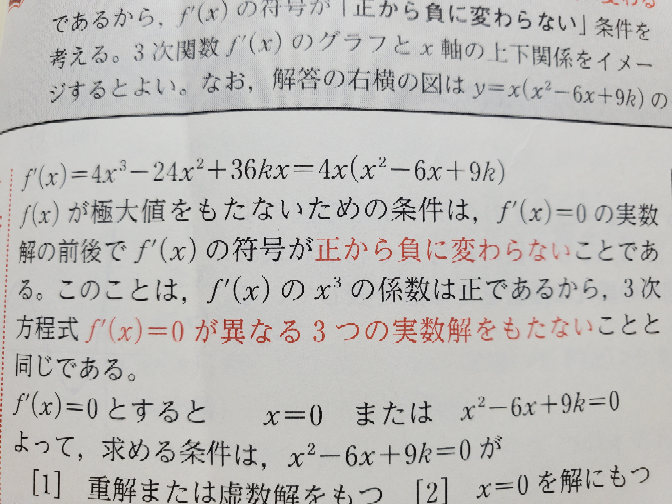 であるから，f′(x) の符号が「正から負に変わらない」条件を
考える。3 次関数 f′(x) のグラフと x 軸の上下関係をイメー
ジするとよい。なお，解答の右横の図は y=x(x²−6x+9k) の
f′(x)=4x³−24x²+36kx=4x(x²−6x+9k)
f(x) が極大値をもたないための条件は，f′(x)=0 の実数
解の前後で f′(x) の符号が正から負に変わらないことであ
る。このことは，f′(x) の x³ の係数は正であるから，3 次
方程式 f′(x)=0 が異なる 3 つの実数解をもたないことと
同じである。
f′(x)=0 とすると x=0 または x²−6x+9k=0
よって，求める条件は，x²−6x+9k=0 が
[1] 重解または虚数解をもつ [2] x=0 を解にもつ